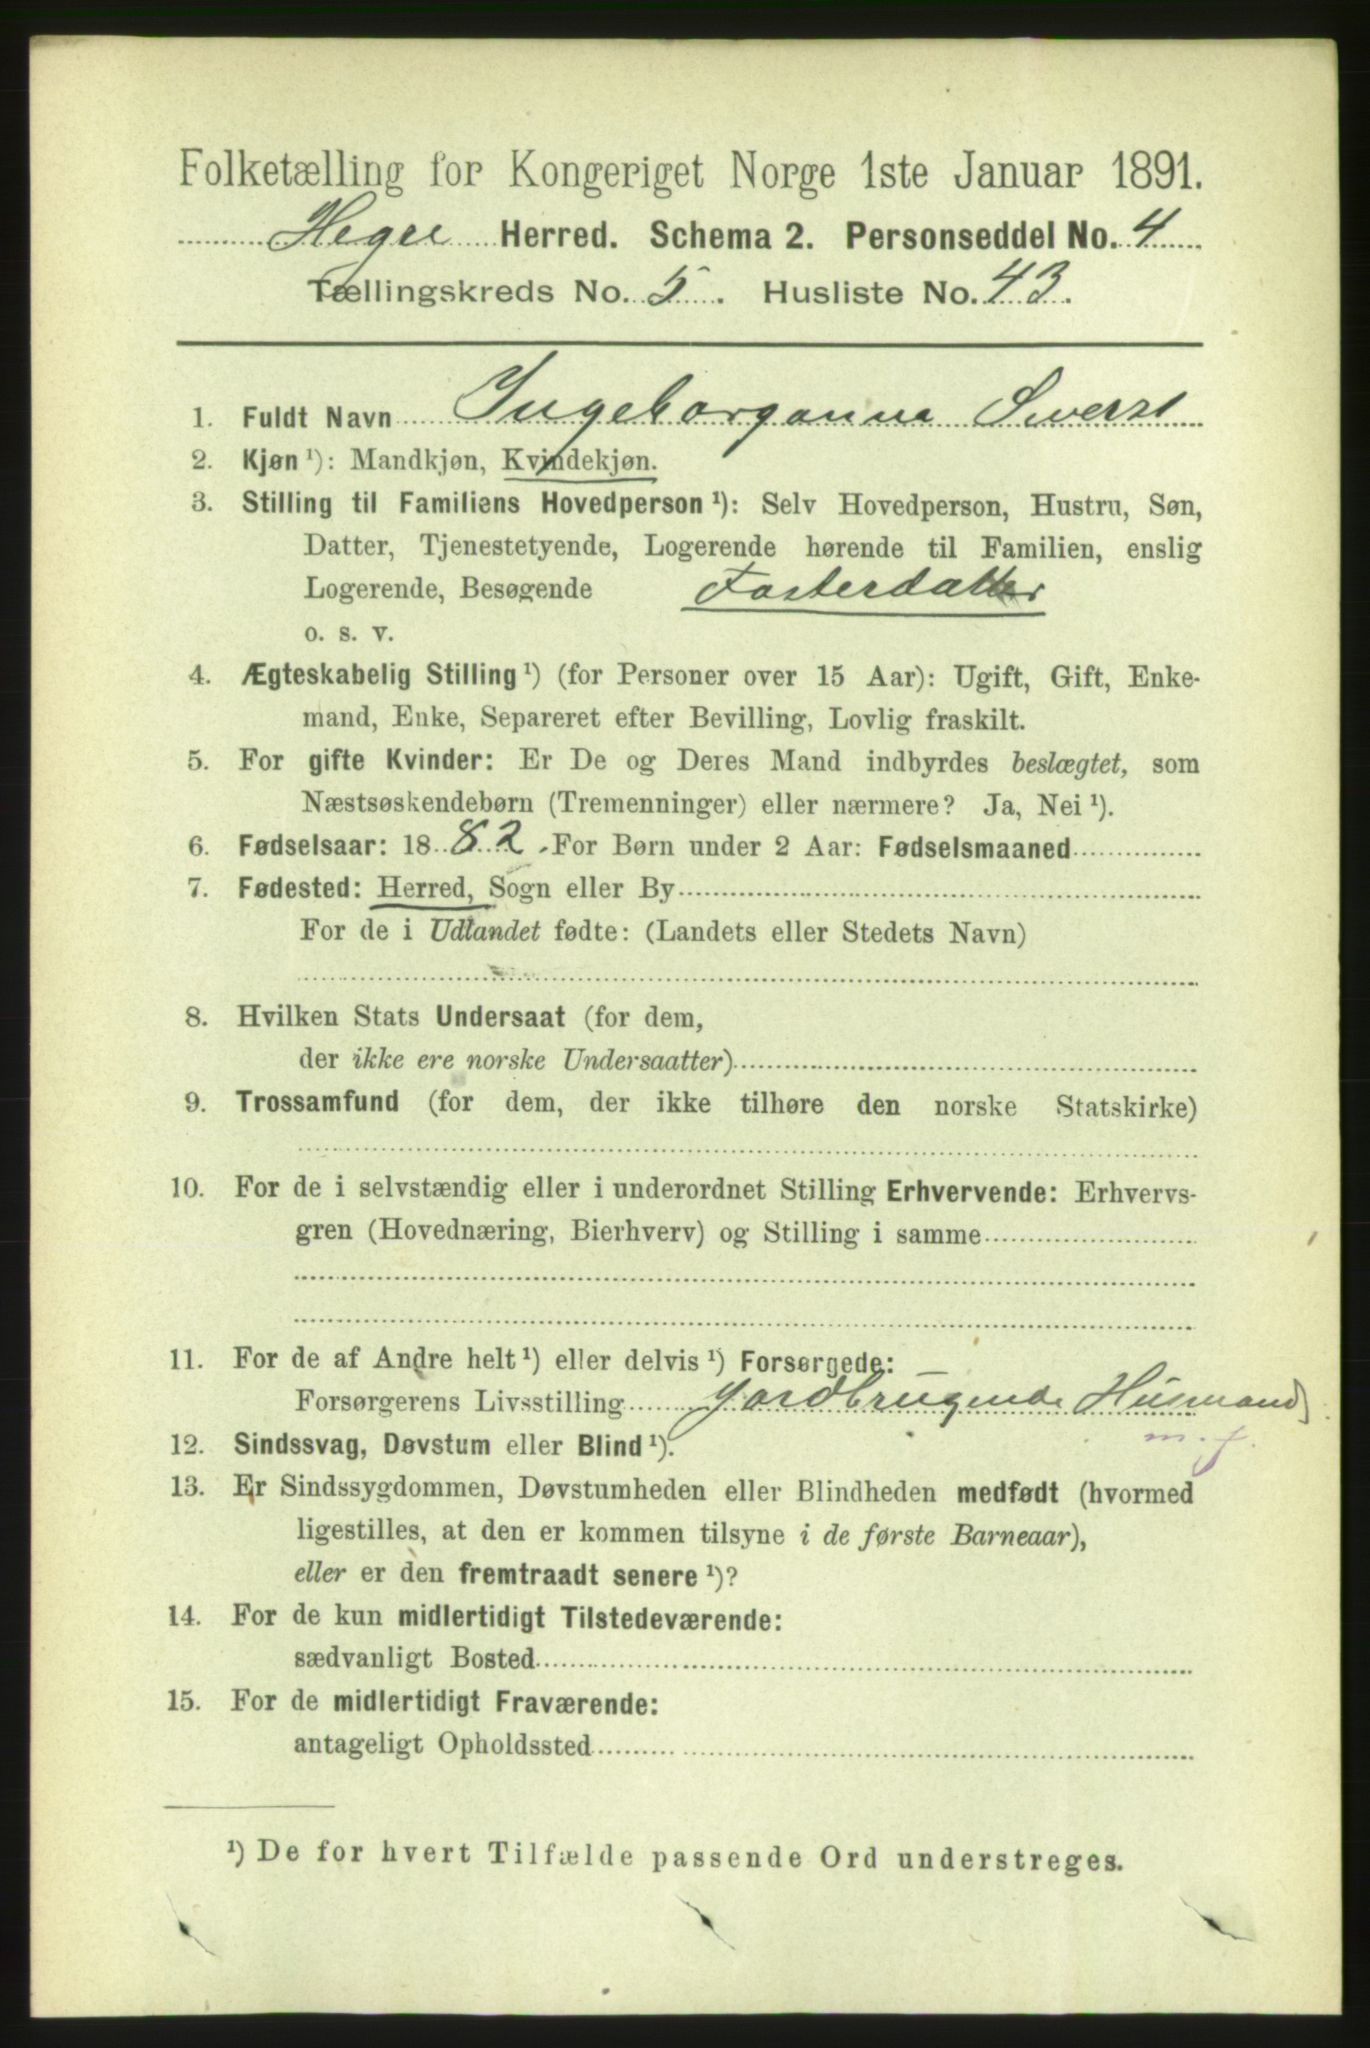 Folketælling for Kongeriget Norge 1ste Januar 1891.
Hegre Herred. Schema 2. Personseddel No. 4
Tællingskreds No. 5. Husliste No. 43.
1. Fuldt Navn Ingeborganna Siversd
2. Kjøn ¹): Mandkjøn, Kvindekjøn.
3. Stilling til Familiens Hovedperson ¹): Selv Hovedperson, Hustru, Søn,
Datter, Tjenestetyende, Logerende hørende til Familien, enslig
Logerende, Besøgende Fosterdatter
o. s. v.
4. Ægteskabelig Stilling ¹) (for Personer over 15 Aar): Ugift, Gift, Enke-
mand, Enke, Separeret efter Bevilling, Lovlig fraskilt.
5. For gifte Kvinder: Er De og Deres Mand indbyrdes beslægtet, som
Næstsøskendebørn (Tremenninger) eller nærmere? Ja, Nei ¹).
6. Fødselsaar: 1882. For Børn under 2 Aar: Fødselsmaaned
7. Fødested: Herred, Sogn eller By
For de i Udlandet fødte: (Landets eller Stedets Navn)
8. Hvilken Stats Undersaat (for dem,
der ikke ere norske Undersaatter)
9. Trossamfund (for dem, der ikke tilhøre den norske Statskirke)
10. For de i selvstændig eller i underordnet Stilling Erhvervende: Erhvervs-
gren (Hovednæring, Bierhverv) og Stilling i samme
11. For de af Andre helt ¹) eller delvis ¹) Forsørgede:
Forsørgerens Livsstilling Jordbrugende Husmand
m. j.
12. Sindssvag, Døvstum eller Blind ¹).
13. Er Sindssygdommen, Døvstumheden eller Blindheden medfødt (hvormed
ligestilles, at den er kommen tilsyne i de første Barneaar),
eller er den fremtraadt senere ¹)?
14. For de kun midlertidigt Tilstedeværende:
sædvanligt Bosted
15. For de midlertidigt Fraværende:
antageligt Opholdssted
¹) De for hvert Tilfælde passende Ord understreges.